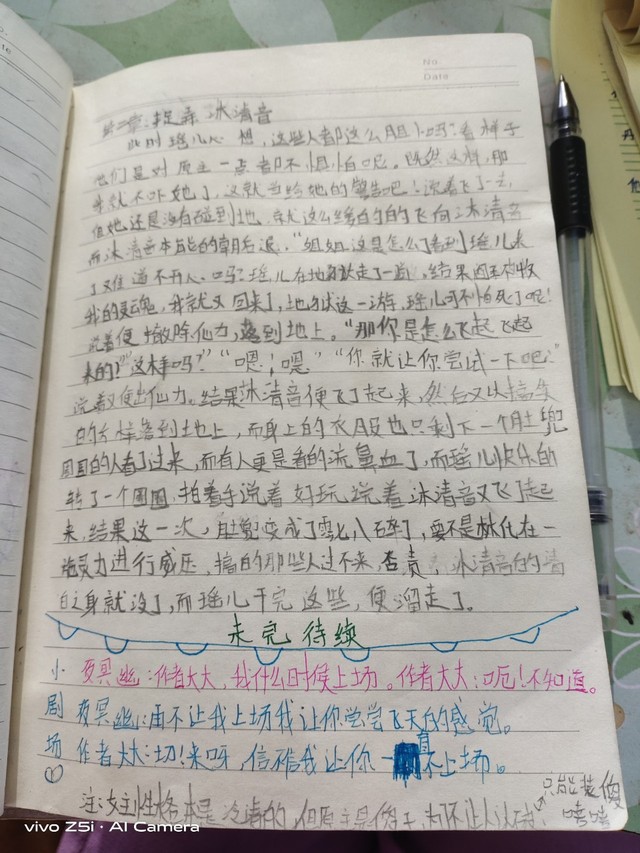 No
Date
第二章:捉弄冰清音
此时瑶儿心想,这些人都这么胆小吗?看样子
他们是对原主一点都不惧怕呢。既然这样,那
就不吓她了,这就当给她的警告吧!说着飞了去,
但她还是没有碰到地,就这么缓的的飞向冰清音
而冰清音本能的朝后退,“姐姐这是怎么了看到瑶儿来
了难道不开心吗?瑶儿在地狱走了一遭,结果阎王不收
我的灵魂,我就又回来了,地狱这一游,瑶儿可不怕死了呢!
说着便撤除仙力,落到地上。“那你是怎么飞起飞起
来的?”“这样吗?”“嗯!嗯”“你就让你尝试一下吧”
说着使出仙力。结果冰清音便飞了起来,然后又以
的方样落到地上,而身上的衣服也只剩下一个肚兜
围的人看了过来,而有人更是看的流鼻血了,而瑶儿快乐的
转了一个圈圈,拍着手说着好玩,说着冰清音又飞了起
来,结果这一次,肚兜变成了零七八碎了,要不是林化在一
进行威压,搞的那些人过不来,否责,冰清音的清
白之身就没了,而瑶儿干完这些,便溜走了。
未完待续
小 夜冥幽:作者大大,我什么时候上场。作者大大:呃!不知道。
剧 夜冥幽:再不让我上场我让你尝尝飞天的感觉。
场 作者大大:切!来呀,信不信我让你一直不上场。
注:女主性格本是冷清的,但原主是傻子,为不让人认
只能装傻
嘻嘻
vivo Z5i · AI Camera